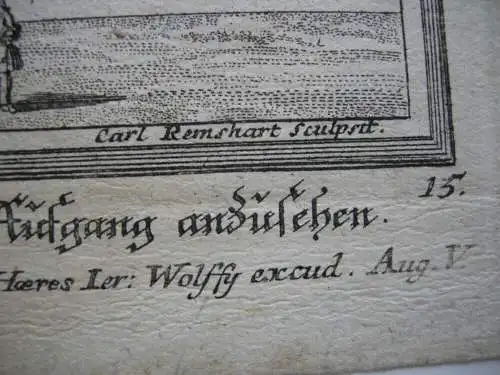 Carl Remshart Sculpsit.
15.
Aufgang anzusehen.
Hæres Ier: Wolffy excud. Aug. V